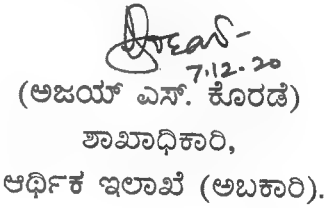 7.12.20
(ಅಜಯ್ ಎಸ್. ಕೊರಡೆ)
ಶಾಖಾಧಿಕಾರಿ,
ಆರ್ಥಿಕ ಇಲಾಖೆ (ಅಬಕಾರಿ).